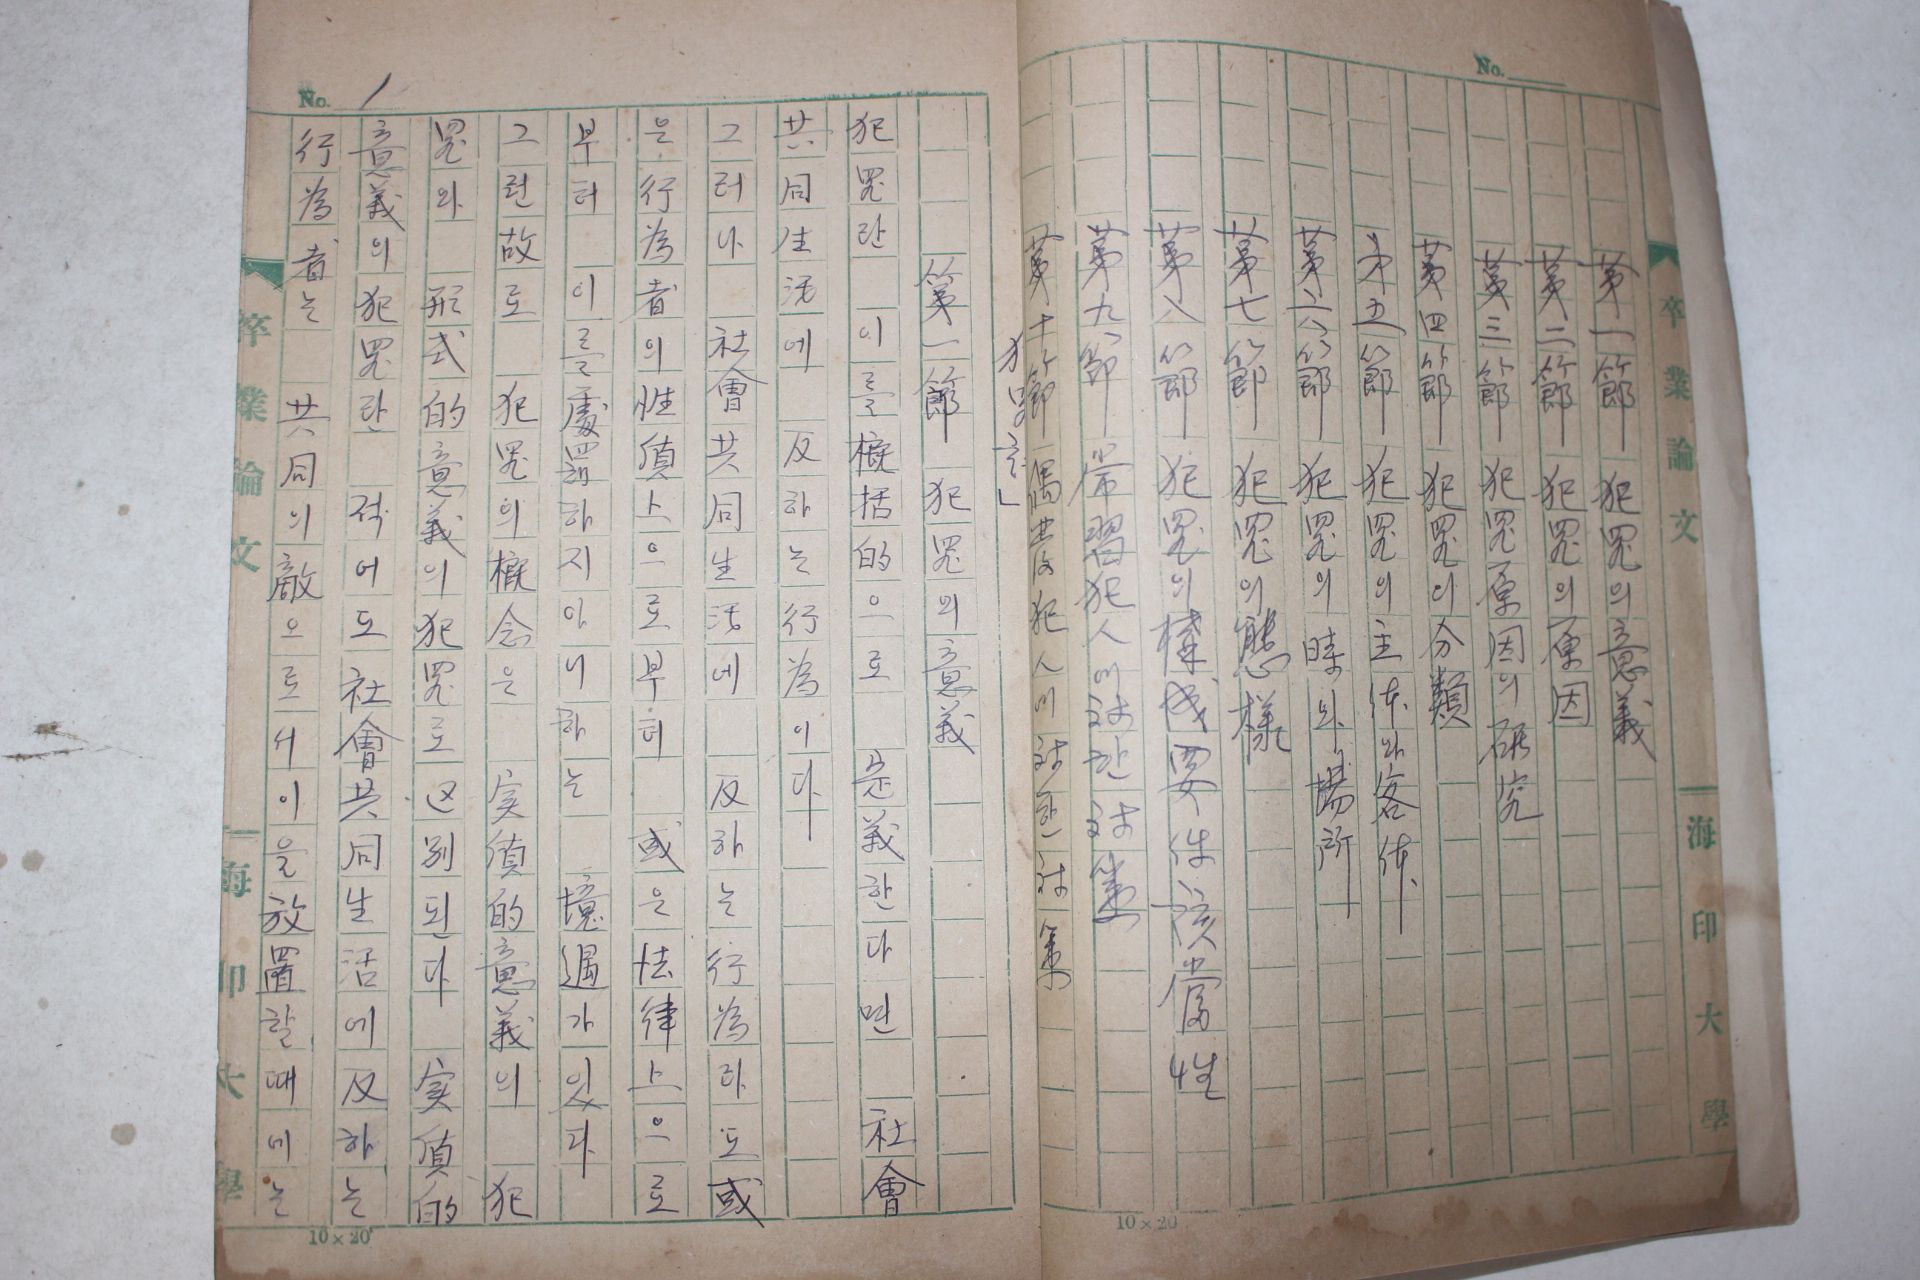 No.
第一節 犯罪의 意義
第二節 犯罪의 原因
第三節 犯罪原因의 硏究
第四節 犯罪의 分類
第五節 犯罪의 主体와 客体
第六節 犯罪의 時와 場所
第七節 犯罪의 態樣
第八節 犯罪의 構成要件 該當性
第九節 常習犯人에 対한 対策
第十節 偶發犯人에 対한 対策
卒業論文
海印大學
10×20
No. 1
第一節 犯罪의 意義
犯罪란 이를 槪括的으로 定義한다면 社會
共同生活에 反하는 行為이다
그러나 社會共同生活에 反하는 行為라도 或
은 行為者의 性質上으로부터 或은 法律上으로
부터 이를 處罰하지 아니하는 境遇가 있다
그런故로 犯罪의 槪念은 実質的意義의 犯
罪와 形式的意義의 犯罪로 区別된다 実質的
意義의 犯罪란 적어도 社會共同生活에 反하는
行為者는 共同의 敵으로서 이을 放置할때에는
卒業論文
海印大學
10×20